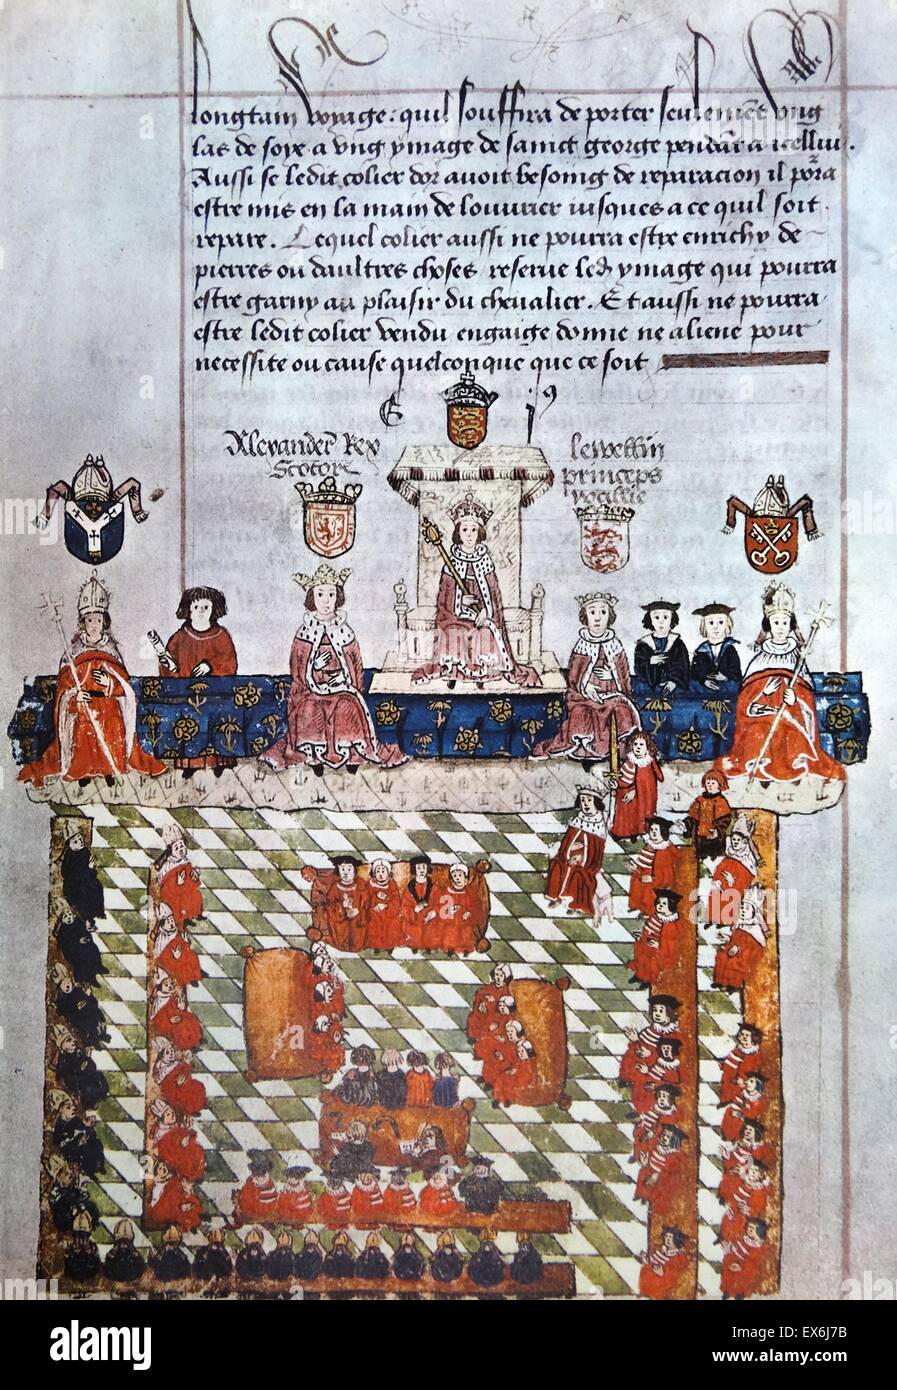 longtain voyage: quil souffira de porter seulemēt ung
las de soye a ung ymage de sainct george pendāt a icelluy.
Aussi se ledit colier dor avoit besoing de reparacion il porra
estre mis en la main de louvrier iusques a ce quil soit
repare. Lequel colier aussi ne pourra estre enrichy de
pierres ou daultres choses reserve led ymage qui pourra
estre garny au plaisir du chevalier. Et aussi ne pourra
estre ledit colier vendu engaige donne ne aliene pour
necessite ou cause quelconque que ce soit
E 1 9
Alexander Rex
Scotor
lewellin
princeps
wallie
alamy stock photo
EX6J7B
www.alamy.com